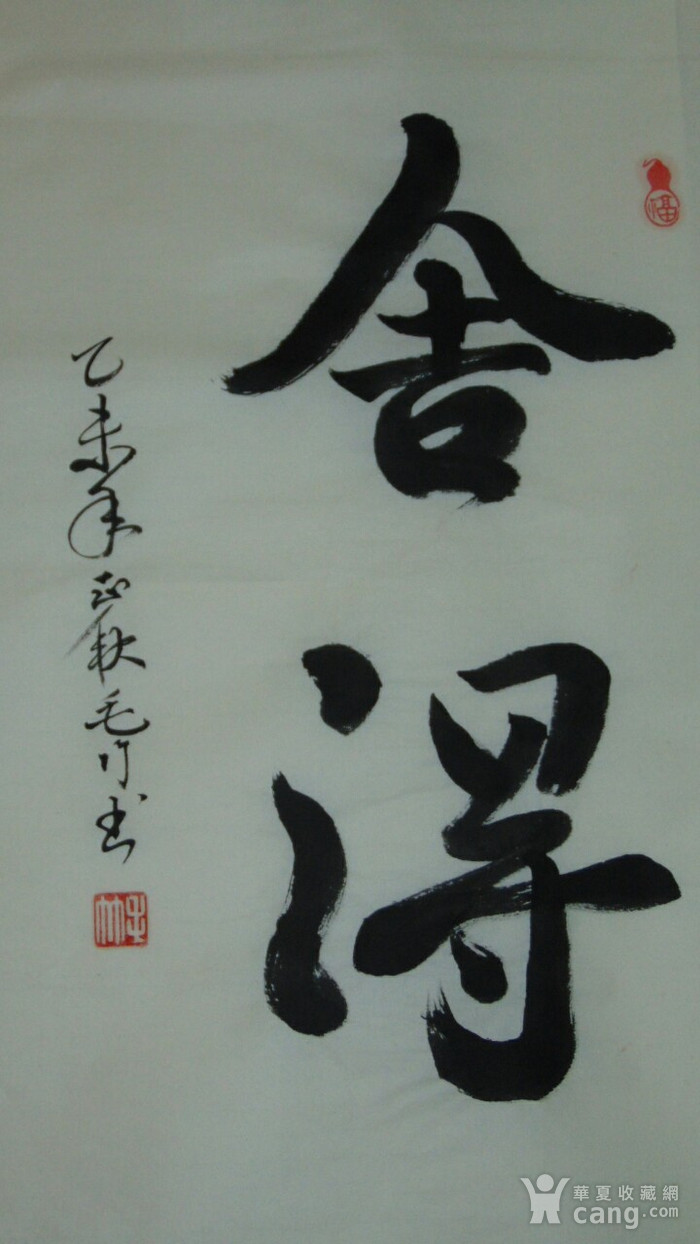 舍得
乙未年正秋毛竹书
福
毛竹
華夏收藏網
cang.com